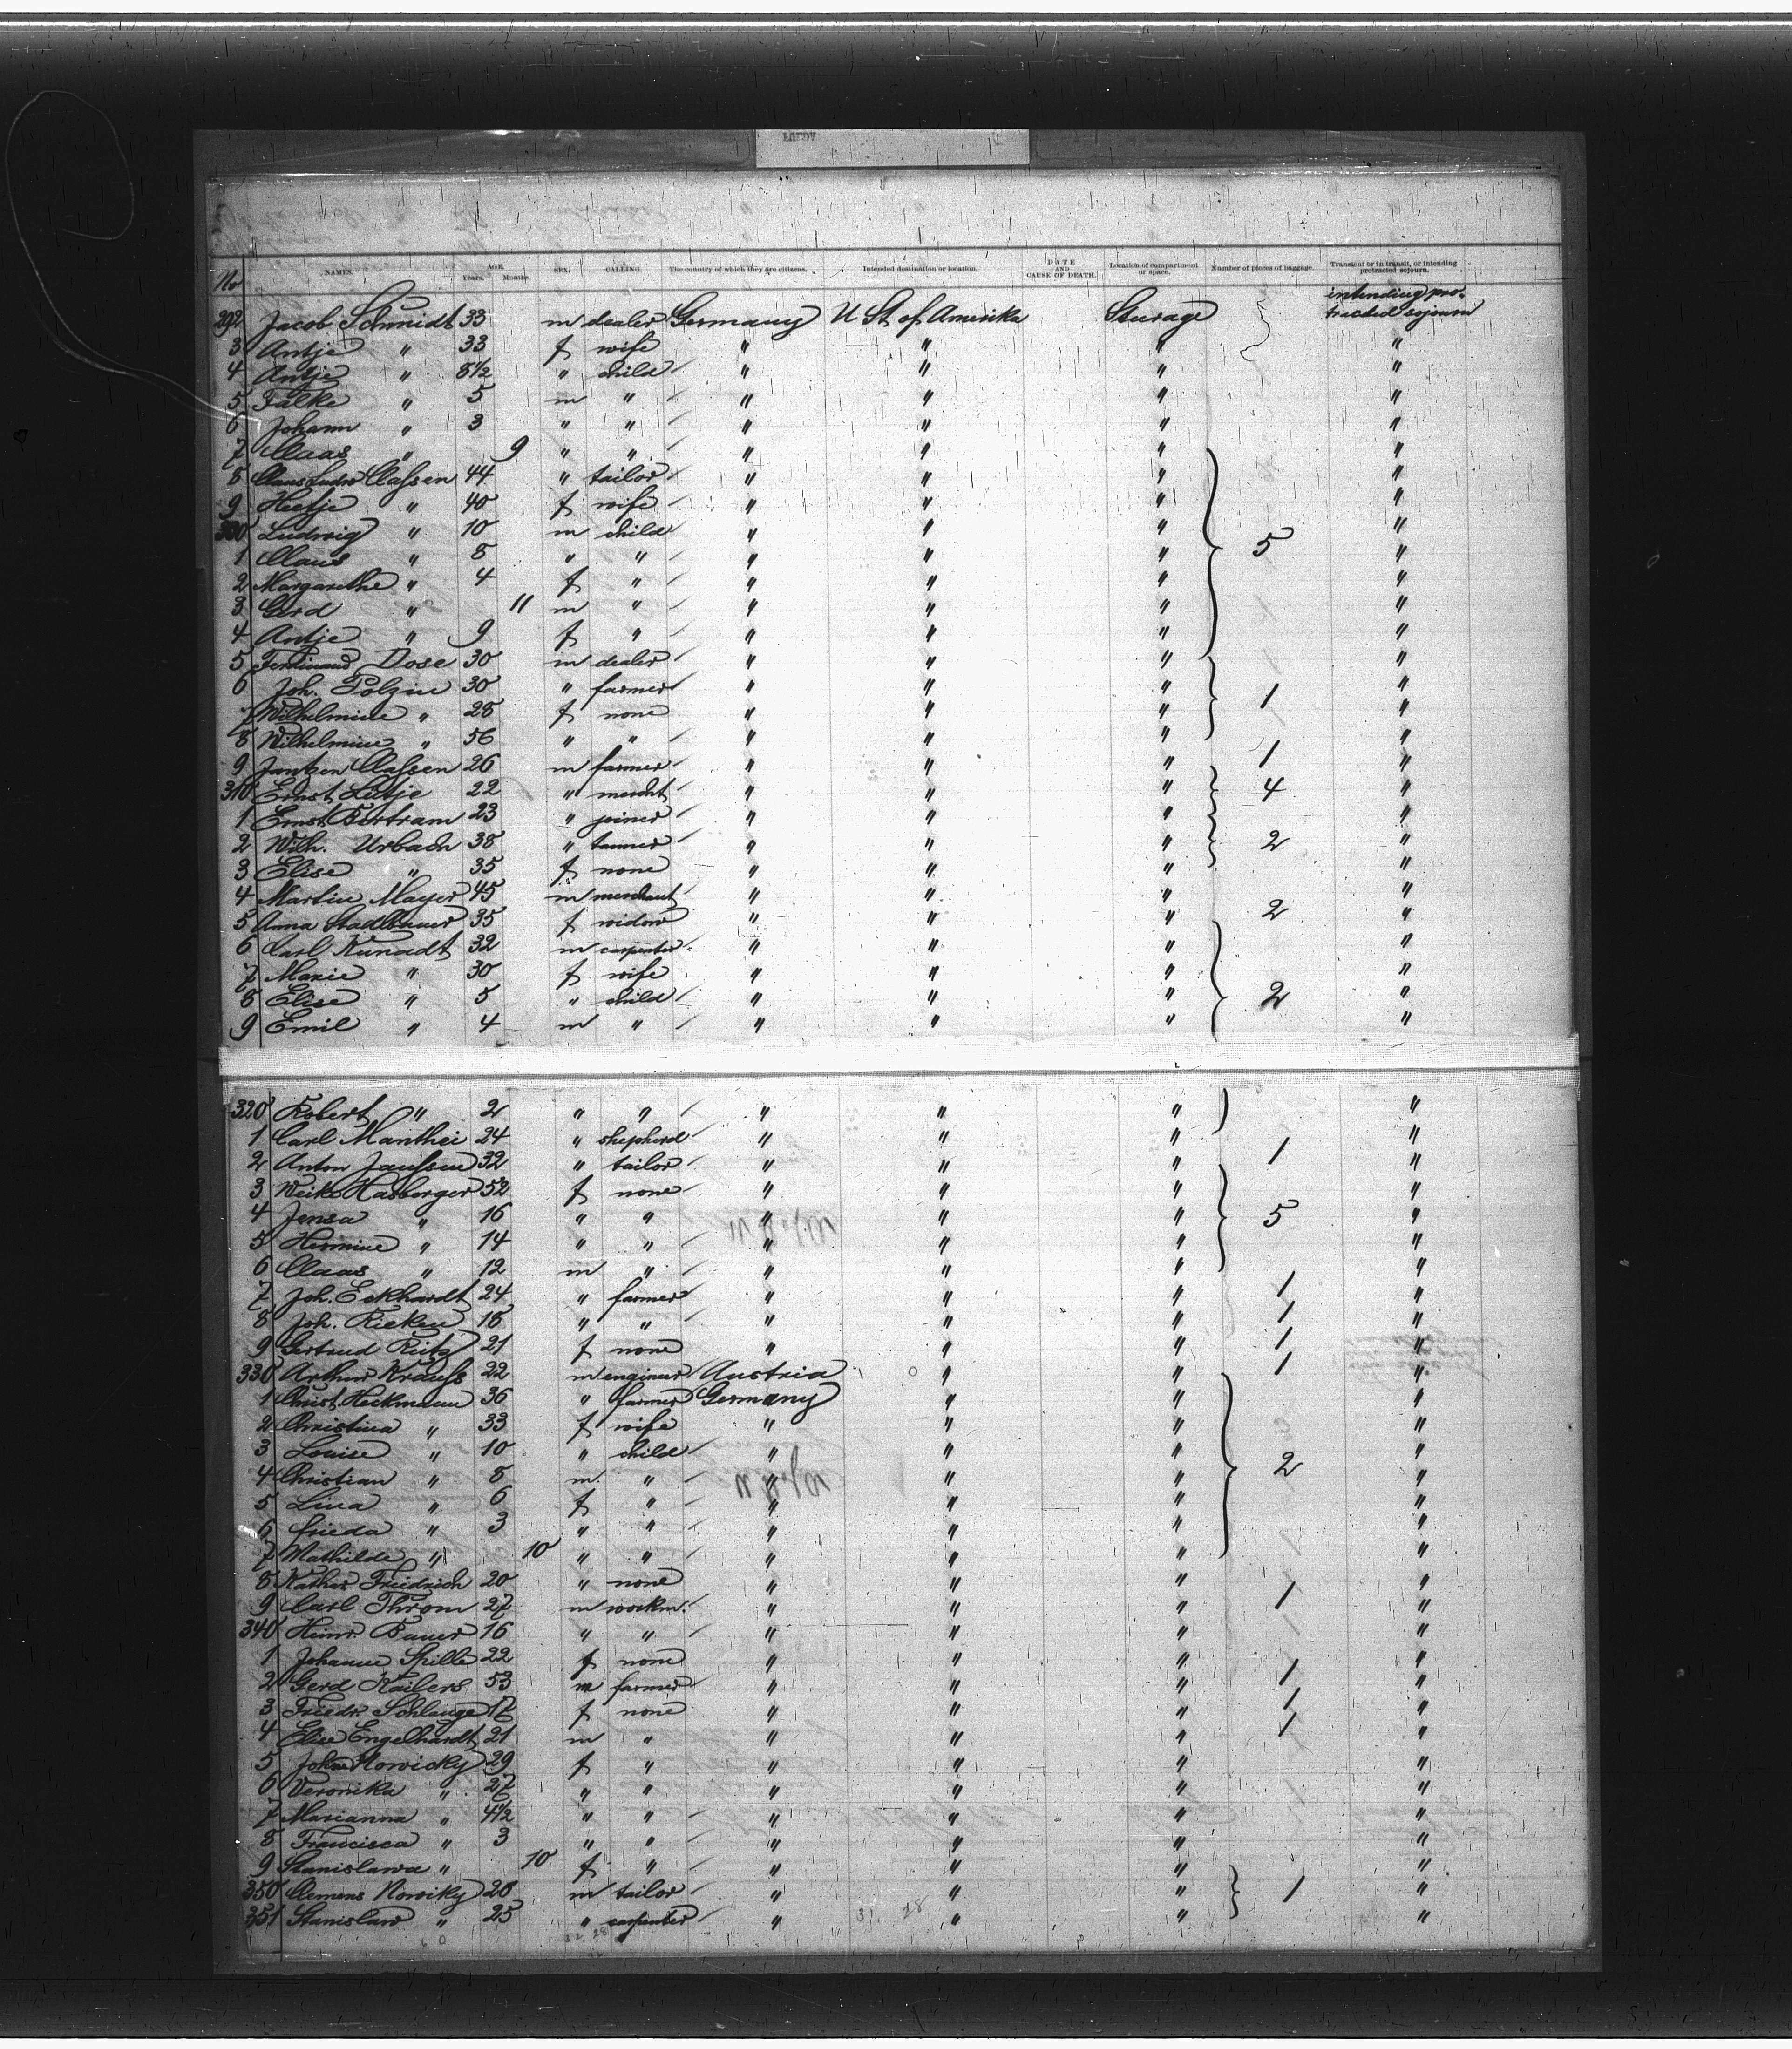 No NAMES. AGE. Years. Months. SEX. CALLING. The country of which they are citizens. Intended destination or location. DATE AND CAUSE OF DEATH. Location of compartment or space. Number of pieces of baggage. Transient or in transit, or intending protracted sojourn.
292 Jacob Schmidt 33 m dealer Germany U St. of Amerika Sturage intending pro- tracted sojourn
3 Antje " 33 f wife " " " "
4 Antje " 8 1/2 " child " " " "
5 Falke " 5 m " " " " "
6 Johann " 3 " " " " " "
7 Claas " 9 " " " " " "
8 Claus Ludw Classen 44 " tailor " " " "
9 Heetje " 40 f wife " " " "
300 Ludwig " 10 m child " " " "
1 Claus " 8 " " " " " 5 "
2 Margarethe " 4 f " " " " "
3 Gerd " 11 m " " " " "
4 Antje " 9 f " " " " "
5 Ferdinand Dose 30 m dealer " " " "
6 Joh. Polzin 30 " farmer " " " 1 "
7 Wilhelmine " 28 f none " " " "
8 Wilhelmine " 56 " " " " " 1 "
9 Jantzen Classen 26 m farmer " " " "
310 Ernst Lütje 22 " mercht " " " 4 "
1 Ernst Bertram 23 " joiner " " " "
2 Wilh. Urbach 38 " tanner " " " 2 "
3 Elise " 35 f none " " " "
4 Martin Mayer 45 m merchant " " " "
5 Anna Stadlbauer 35 f widow " " " 2 "
6 Carl Kunadt 32 m carpenter " " " "
7 Marie " 30 f wife " " " "
8 Elise " 5 " child " " " 2 "
9 Emil " 4 m " " " " "
320 Robert " 2 " " " " " "
1 Carl Manthei 24 " shepherd " " " 1 "
2 Anton Janssen 32 " tailor " " " "
3 Weike Hasberger 52 f none " " " "
4 Jensa " 16 " " " " " 5 "
5 Hermine " 14 " " " " " "
6 Claas " 12 m " " " " "
7 Joh. Eckhardt 24 " farmer " " " 1 "
8 Joh. Rieken 18 " " " " " 1 "
9 Gertrud Rütz 21 f none " " " 1 "
330 Arthur Krauss 22 m engineer Austria " " 1 "
1 Christ. Heckmann 36 " farmer Germany " " "
2 Christina " 33 f wife " " " "
3 Louise " 10 " child " " " "
4 Christian " 8 m " " " " 2 "
5 Lina " 6 f " " " " "
6 Frieda " 3 " " " " " "
7 Mathilde " 10 " " " " " "
8 Kathar Friedrich 20 " none " " " "
9 Carl Throm 27 m workm. " " " 1 "
340 Heinr. Bauer 16 " " " " " "
1 Johanne Spille 22 f none " " " "
2 Gerd Kailers 53 m farmer " " " 1 "
3 Friedr. Schlange 17 f none " " " 1 "
4 Elise Engelhardt 21 m " " " " 1 "
5 Johna Nowicky 29 f " " " " "
6 Veronika " 27 " " " " " "
7 Marianna " 4 1/2 " " " " " "
8 Francisca " 3 " " " " " "
9 Stanislawa " 10 f " " " " "
350 Clemens Nowiky 28 m tailor " " " 1 "
351 Stanislaw " 25 " carpenter " " " "